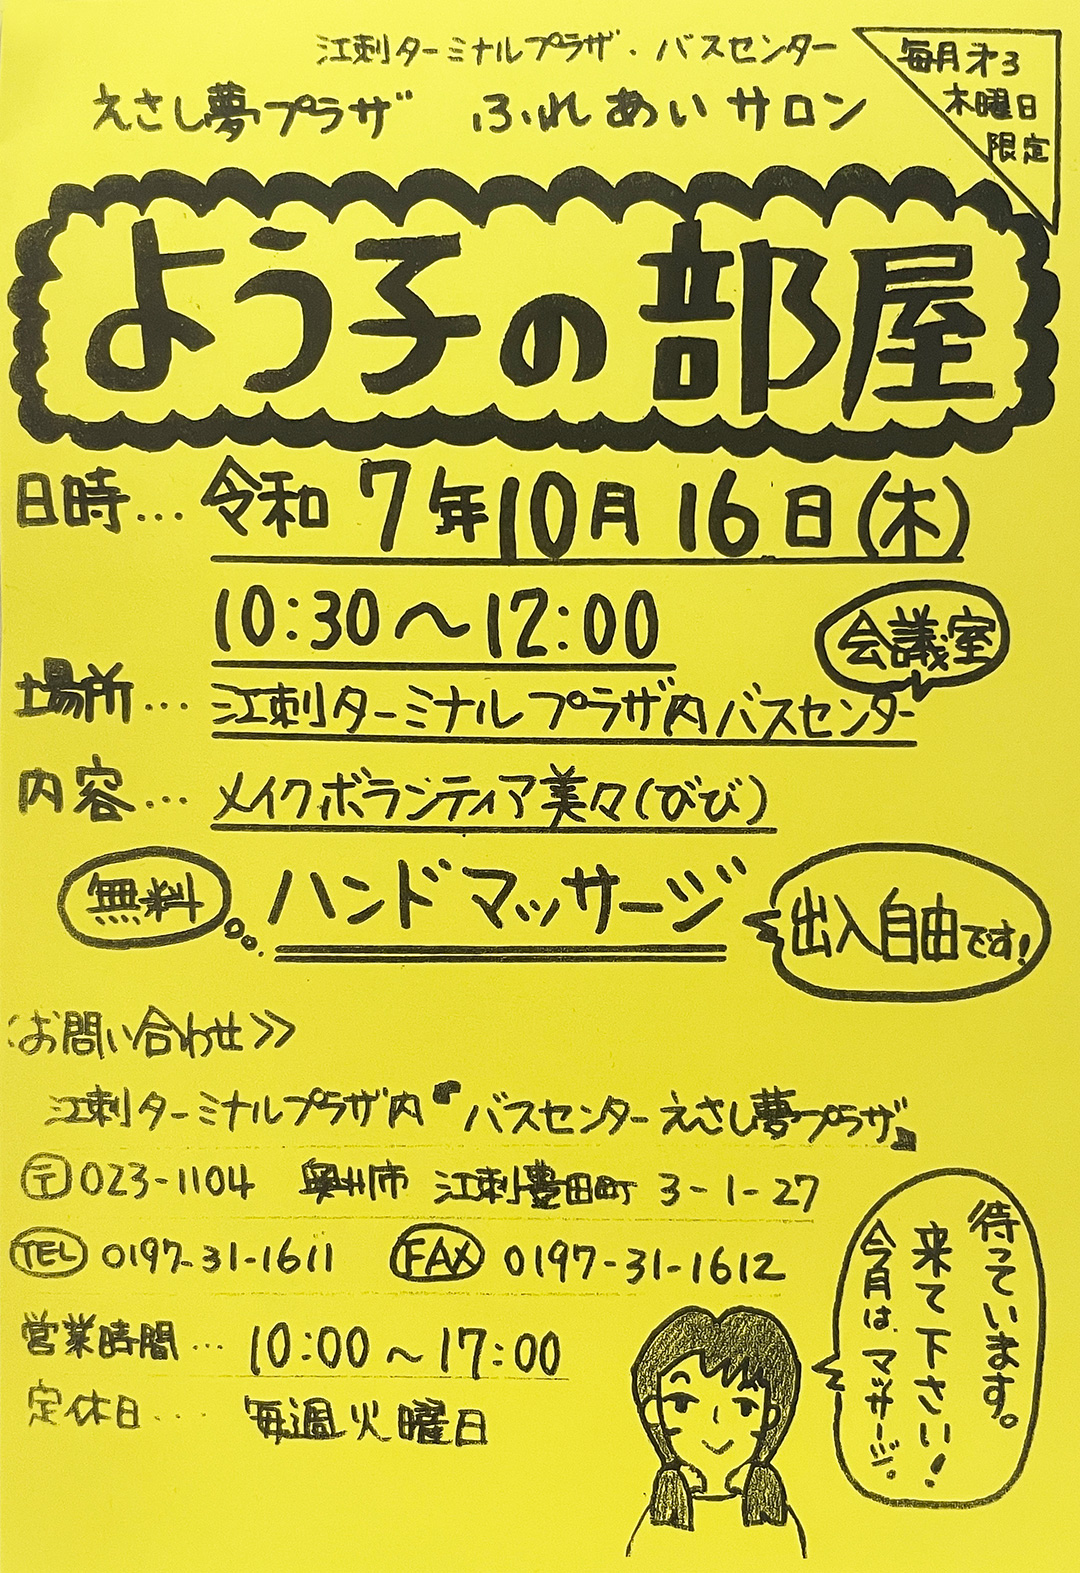 江刺ターミナルプラザ・バスセンター
えさし夢プラザ ふれあいサロン
毎月才3
木曜日
限定
よう子の部屋
日時… 令和7年10月16日(木)
10:30〜12:00
会議室
場所… 江刺ターミナルプラザ内バスセンター
内容… メイクボランティア美々(びび)
無料
ハンドマッサージ
出入自由です!
お問い合わせ>>
江刺ターミナルプラザ内『バスセンターえさし夢プラザ』
〒023-1104 奥州市 江刺豊田町 3-1-27
TEL 0197-31-1611 FAX 0197-31-1612
営業時間… 10:00〜17:00
定休日… 毎週火曜日
待っています。
来て下さい!
今月は、マッサージ。